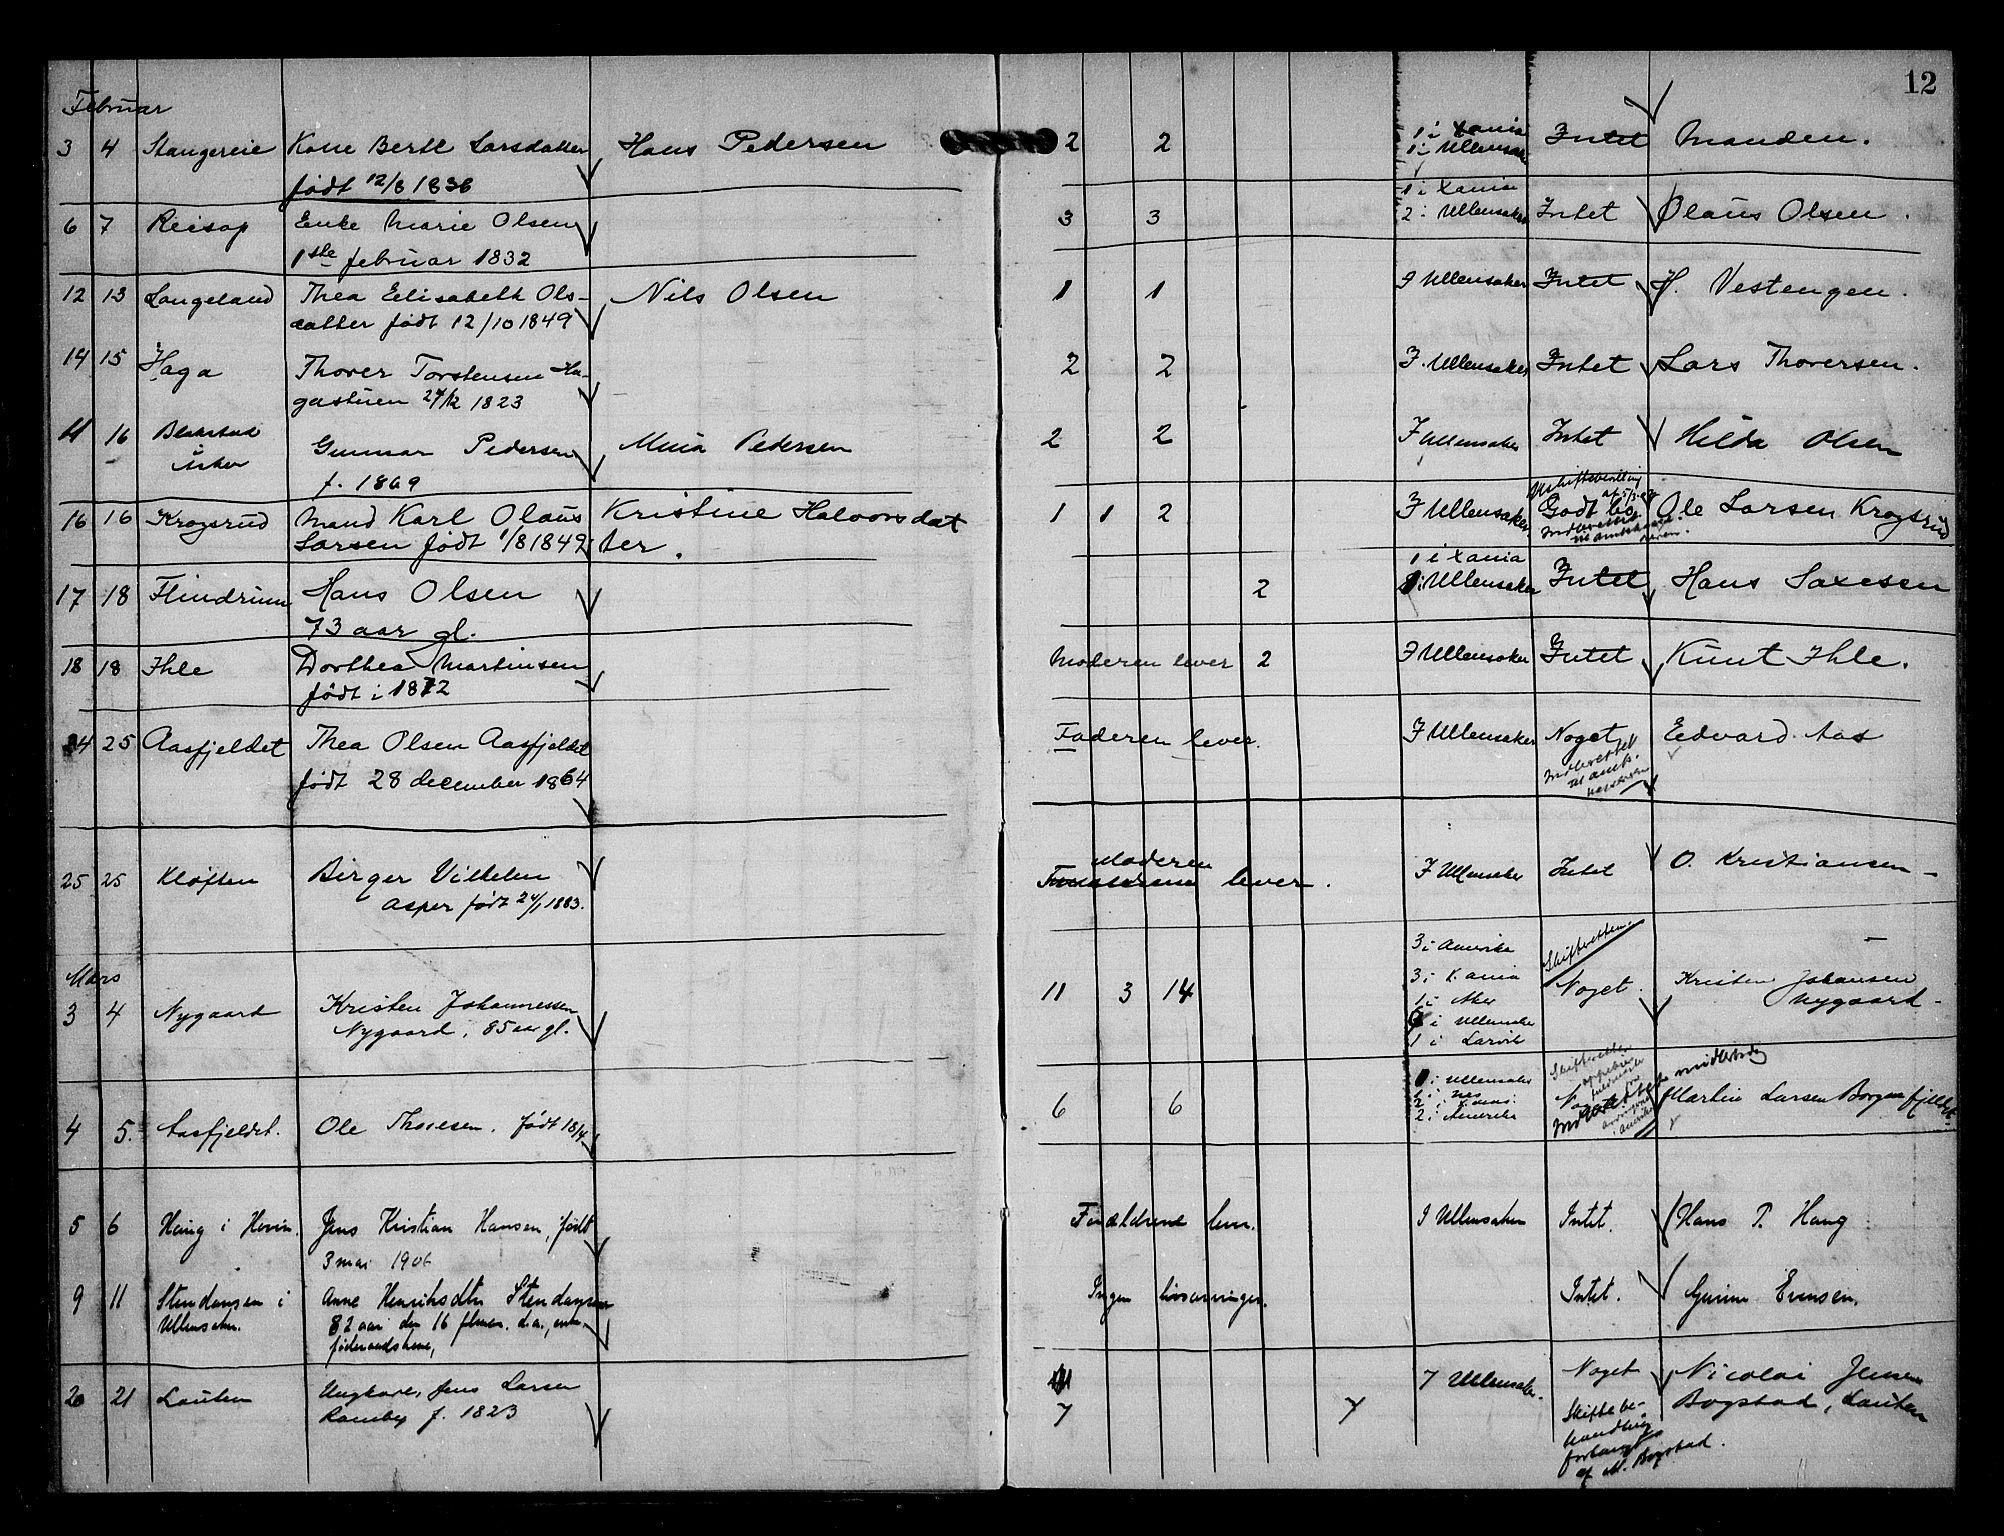 12
Februar
3 4 Stangereie Kone Berte Larsdatter Hans Pedersen 2 2 1 i Xania Intet Manden.
født 12/8 1836 1 i Ullensaker
6 7 Reisop Enke Marie Olsen 3 3 1 i Xania Intet Olaus Olsen.
1ste februar 1832 2 i Ullensaker
12 13 Langeland Thea Elisabeth Ols- Nils Olsen 1 1 I Ullensaker Intet H. Vestengen.
datter født 12/10 1849
14 15 Haga Thorer Torstensen Ha- 2 2 I Ullensaker Intet Lars Thorersen.
gastuen 24/12 1823
11 16 Blakstad Gunnar Pedersen Mina Pedersen 2 2 I Ullensaker Intet Hilda Olsen
f. 1869
16 16 Krogsrud Mand Karl Olaus Kristine Halvorsdat 1 1 2 I Ullensaker Godt bo Ole Larsen Krogsrud
Larsen født 1/8 1849 ter.
17 18 Flindrum Hans Olsen 2 1 i Xania Intet Hans Saxesen
73 aar gl. i Ullensaker
18 18 Ihle Dorthea Martinsen Moderen lever 2 I Ullensaker Intet Knut Ihle.
født i 1872
24 25 Aasfjeldet Thea Olsen Aasfjeldet Faderen lever. I Ullensaker Noget Edvard Aas
født 28 december 1864
Indberettet
til amt.
25 25 Kløften Birger Vilhelm Moderen lever. I Ullensaker Intet O. Kristiansen
Asper født 24/1 1883.
Mars
3 4 Nygaard Kristen Johannessen 11 3 14 Skifteretten Noget. Kristen Johansen
Nygaard, 85 aar gl. Nygaard
3 i Amerika
3 i Xania
1 i Aker
i Ullensaker
1 i Larvik
4 5. Aasfjeldet. Ole Thoresen. født 18/4 6 6 Noget Martin Larsen Borgenfjeldet
i Ullensaker
1 i Nes
2 i Xania
2 i Amerika
5 6 Haug i Hovin. Jens Kristian Hansen, født Forældrene lever. I Ullensaker Intet. Hans P. Haug
3 mai 1906
9 11 Stendansen i Anne Henriksdtr. Stendansen Ingen livsarvinger. Intet. Gunnar Evensen.
Ullensaker. 82 aar den 16 febuar. d.a., enke,
føderaadskone,
20 21 Lauten Ungkarl, Jens Larsen 7 7 I Ullensaker. Noget Nicolai Jensen
Ramby f. 1823 Bogstad, Lauten
Skiftebe-
handling
forlangt
af M. Bogstad.